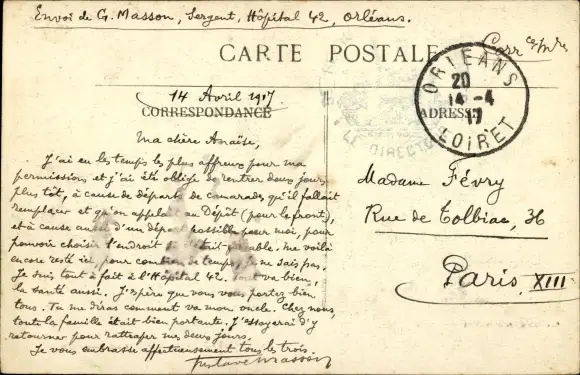 Envoi de G. Masson, Sergent, Hôpital 42, Orléans.
CARTE POSTALE
ORLEANS
20
14-4
17
LOIRET
14 Avril 1917
CORRESPONDANCE
ADRESSE
Ma chère Anaïse,
J'ai eu les temps les plus affreux pour ma
permission et j'ai été obligé de rentrer deux jours
plus tôt, à cause de départs de camarades qu'il fallait
remplacer et qu'on appelait au Dépôt (pour le front),
et à cause aussi d'un départ possible pour moi, pour
pouvoir choisir l'endroit si c'était . Me voilà
encore resté ici, pour combien de temps, je ne sais pas.
Je suis tout à fait à l'Hôpital 42. Tout va bien,
la santé aussi. J'espère que vous vous portez bien
tous. Tu me diras comment va mon oncle. Chez nous
toute la famille était bien portante. J'essayerai d'y
retourner pour rattraper mes deux jours.
Je vous embrasse affectueusement tous les trois.
Gustave Masson
Madame Févry
Rue de Tolbiac, 36
Paris XIII